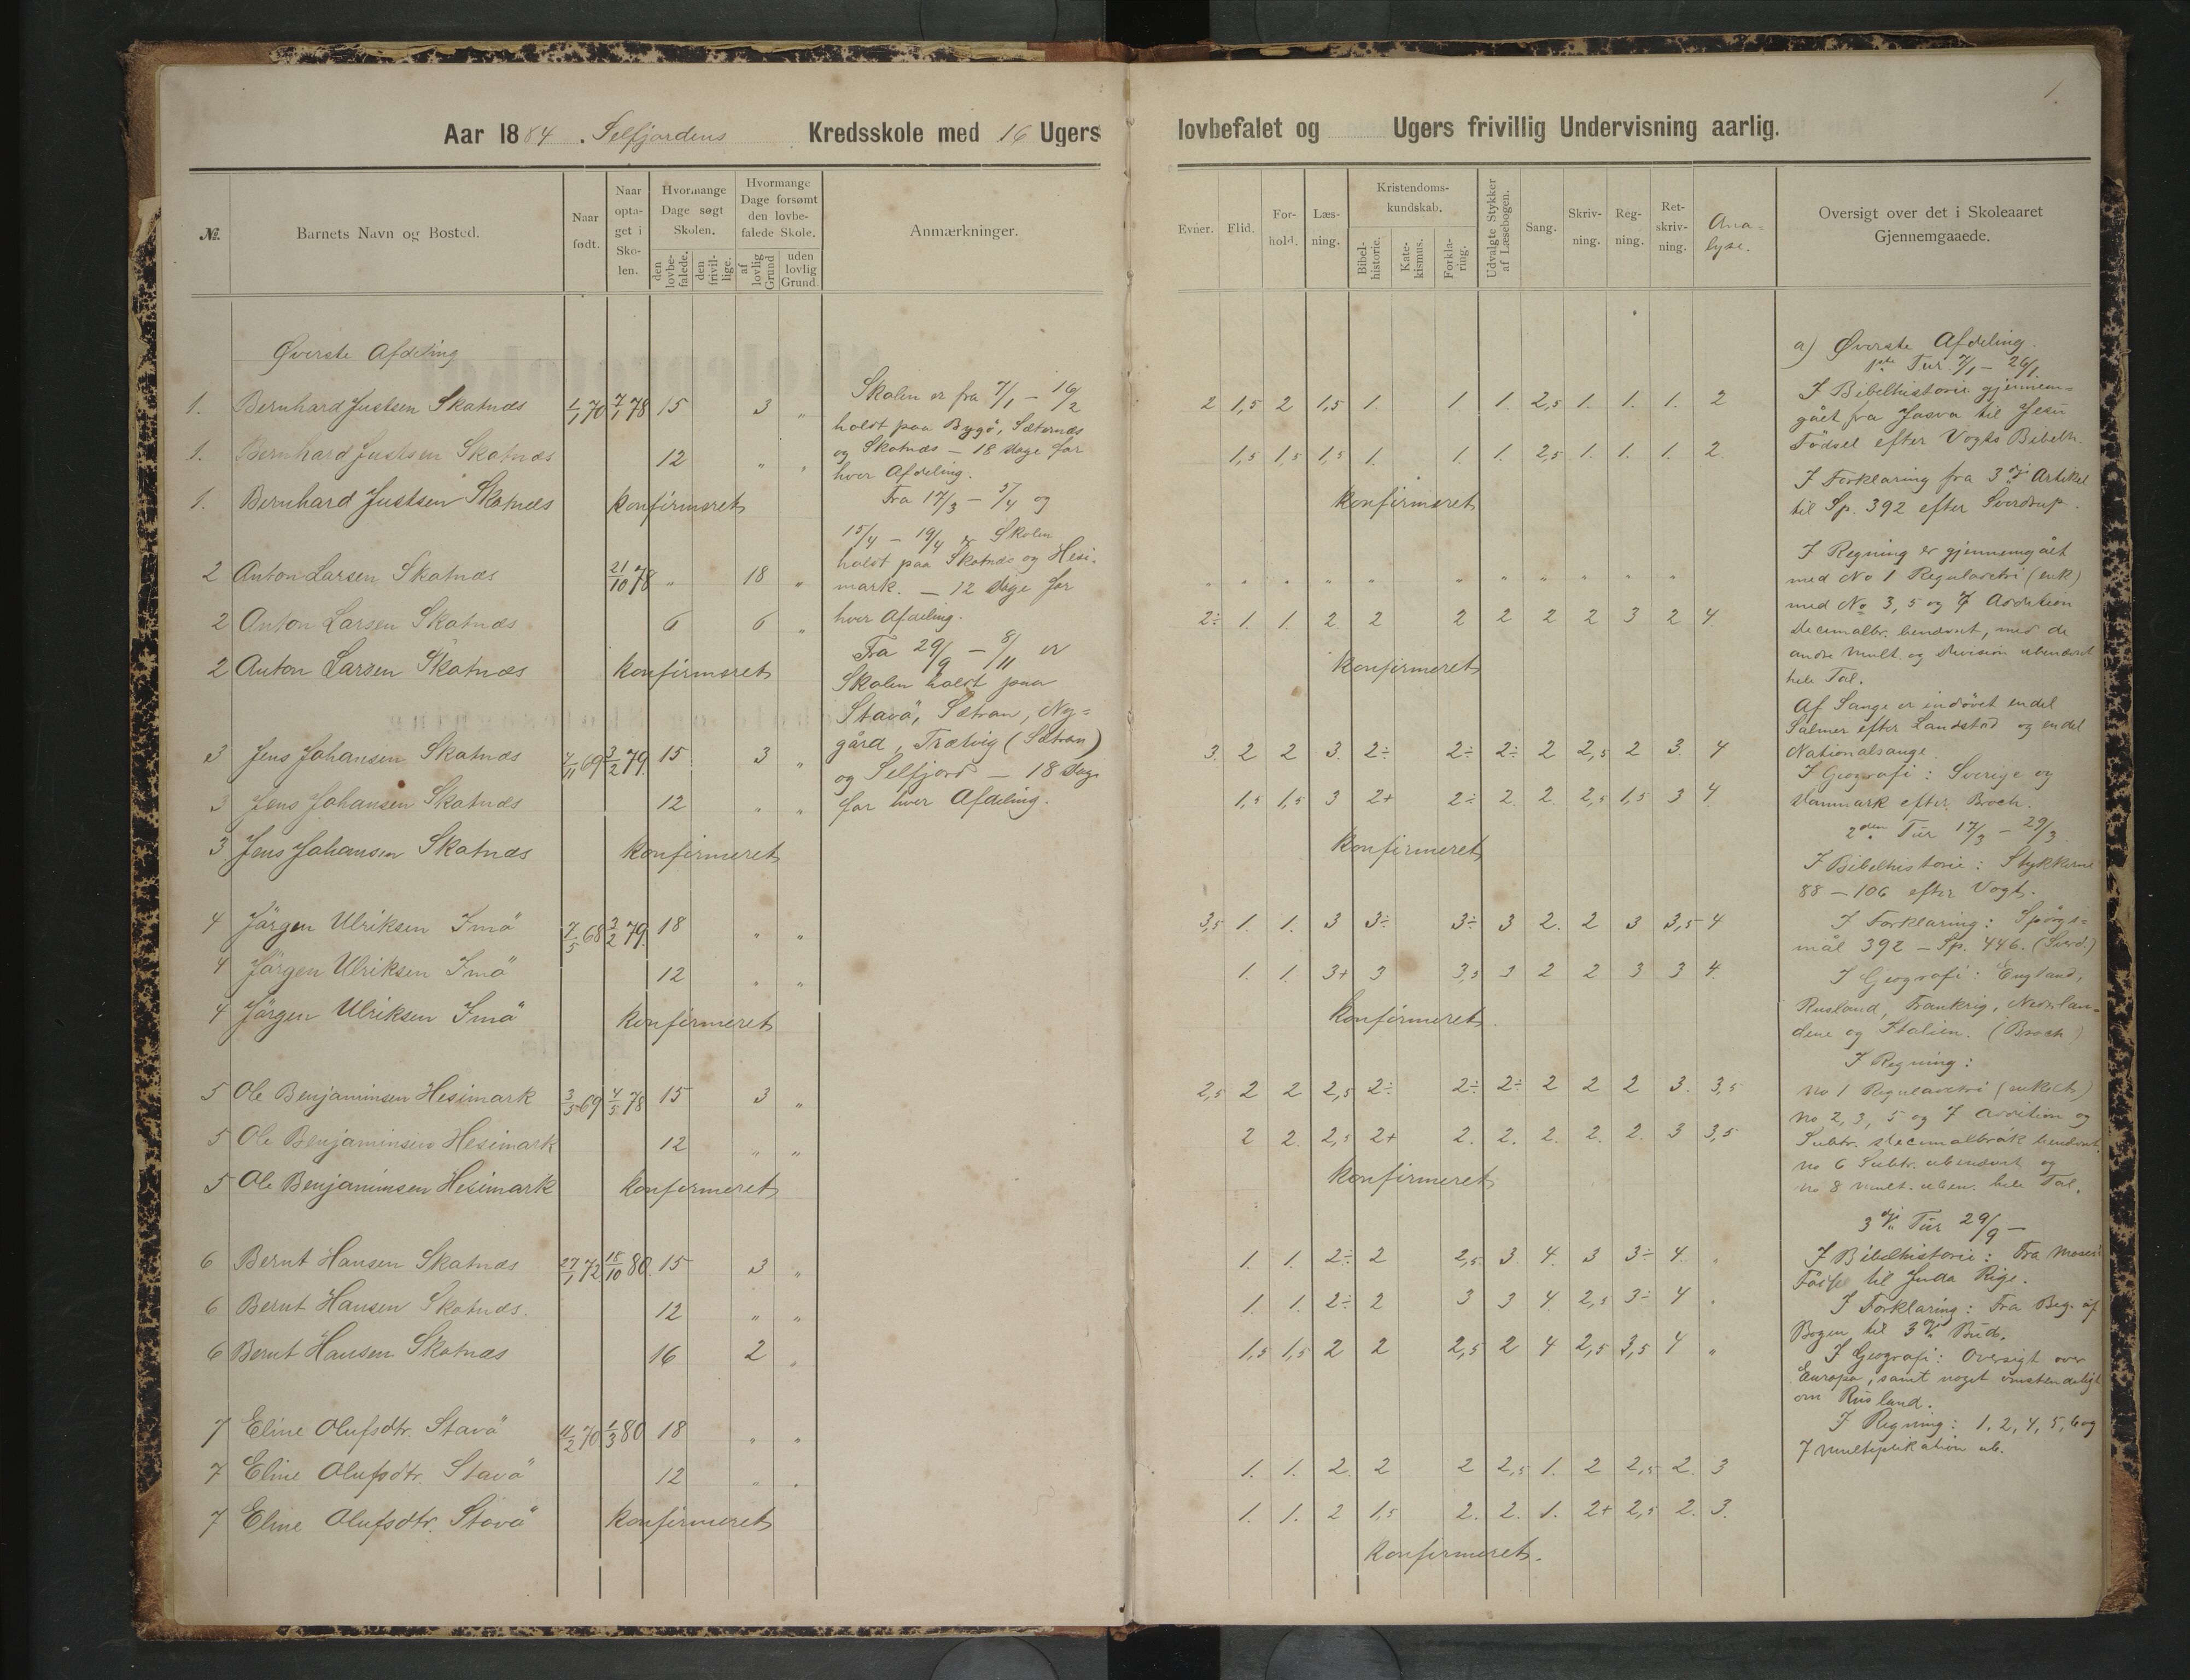 1.
Aar 1884. Selfjordens Kredsskole med 16 Ugers lovbefalet og Ugers frivillig Undervisning aarlig.
№. Barnets Navn og Bosted. Naar født. Naar optaget i Skolen. Hvormange Dage søgt Skolen. den lovbefalede. den frivillige. Hvormange Dage forsømt den lovbefalede Skole. af lovlig Grund uden lovlig Grund Anmærkninger.
Evner. Flid. Forhold. Læsning. Kristendomskundskab. Bibelhistorie. Katekismus. Forklaring. Udvalgte Stykker af Læsebogen. Sang. Skrivning. Regning. Retskrivning. Analyse. Oversigt over det i Skoleaaret Gjennemgaaede.
Øverste Afdeling
1. Bernhard Justsen Skatnæs 1/1 70 7/1 78 15 3 „
1. Bernhard Justsen Skatnæs 12 „ „
1. Bernhard Justsen Skatnæs konfirmeret
2 Anton Larsen Skatnæs 21/10 78 „ 18 „
2 Anton Larsen Skatnæs 6 6 „
2 Anton Larsen Skatnæs konfirmeret
3 Jens Johansen Skatnæs 4/11 69 3/2 79. 15 3 „
3 Jens Johansen Skatnæs 12 „ „
3 Jens Johansen Skatnæs konfirmeret
4 Jörgen Ulriksen Imö 7/5 68 3/2 79. 18 „ „
4 Jörgen Ulriksen Imö 12 „ „
4 Jörgen Ulriksen Imö konfirmeret
5 Ole Benjaminsen Hesimark 3/5 69 4/5 78 15 3 „
5 Ole Benjaminsen Hesimark 12 „ „
5 Ole Benjaminsen Hesimark konfirmeret
6 Bernt Hansen Skatnæs 27/1 72 18/10 80. 15 3 „
6 Bernt Hansen Skatnæs. 12 „ „
6 Bernt Hansen Skatnæs 16 2 „
7 Eline Olufsdtr. Stavö 11/2 70 1/3 80 18 „ „
7 Eline Olufsdtr. Stavö 12 „ „
7 Eline Olufsdtr. Stavö konfirmeret
Skolen er fra 7/1 – 16/2
holdt paa Bygö, Sæternæs
og Skatnæs – 18 dage for
hver Afdeling.
Fra 17/3 – 5/4 og
15/4 – 19/4 er Skolen
holdt paa Skatnæs og Hesi-
mark. – 12 Dage for
hver Afdeling.
Fra 29/9 – 8/11 er
Skolen holdt paa
Stavö, Sætran, Ny=
gård, Trælvig (Sætran)
og Selfjord – 18 Dage
for hver Afdeling.
2 1,5 2 1,5 1. 1. 1. 2,5 1. 1. 1. 2
1,5 1,5 1,5 1. 1. 1. 2,5 1. 1. 1. 2.
konfirmeret
„ „ „ „ „ „ „ „ „ „ „
2÷ 1. 1. 2. 2 2 2 2 2 3 2 4.
konfirmeret
3. 2 2 3. 2÷ 2÷ 2÷ 2 2,5 2 3. 4
1,5 1,5 3 2+ 2÷ 2. 2. 2,5 1,5 3 4.
konfirmeret
3,5 1. 1. 3 3÷ 3÷ 3 2. 2 3 3,5 4
1. 1. 3+ 3 3,5 3 2 2 3 3 4.
konfirmeret
2,5 2 2 2,5 2÷ 2÷ 2÷ 2 2 2 3. 3,5
2 2. 2,5 2+ 2. 2. 2. 2. 2. 3 3,5
konfirmeret
1. 1. 2÷ 2 2,5 3 4. 3 3÷ 4. „
1. 1. 2÷ 2 3 3 4. 2,5 3÷ 4 „
1,5 1,5 2 2 2,5 2 4 2,5 3,5 4 „
1. 1. 2. 2 2 2,5 1. 2 2,5 2. 3
1. 1. 2 1,5 2. 2. 1. 2+ 2,5 2. 3.
konfirmeret.
a) Øverste Afdeling.
1ste Tur. 7/1 – 26/1.
I Bibelhistorie gjennem=
gået fra Josva til Jesu
Födsel efter Vogts Bibelh.
I Forklaring fra 3dje Artikel
til Sp. 392 efter Sverdrup.
I Regning er gjennemgået
med No 1 Reguladetri (enk)
med No 3, 5 og 7 Addition
Decimalbr. benævnt, med de
andre Mult. og Division ubenævnt
hele Tal.
Af Sange er indövet endel
Salmer efter Landstad og endel
Nationalsange.
I Geografi: Sverige og
Danmark efter Broch.
2den Tur 17/3 – 29/3
I Bibelhistorie: Stykkerne
88 – 106 efter Vogt.
I Forklaring: Spörgs=
mål 392 – Sp. 446. (Sverd.)
I Geografi: England,
Rusland, Frankrig, Nederlan=
dene og Italien. (Broch)
I Regning:
No 1 Reguladetri (enkelt)
No 2, 3, 5 og 7 Addition og
Subtr. Decimalbrök benævnt.
No 6 Subtr. ubenævnt og
No 8 Mult. uben. hele Tal.
3dje Tur 29/9 –
I Bibelhistorie: Fra Mose
Födsel til Juda Rige.
I Forklaring: Fra Beg. af
Bogen til 3dje Bud.
I Geografi: Oversigt over
Europa, samt noget omstendeligt
om Rusland.
I Regning: 1, 2, 4, 5, 6 og
7 Multiplikation ub.